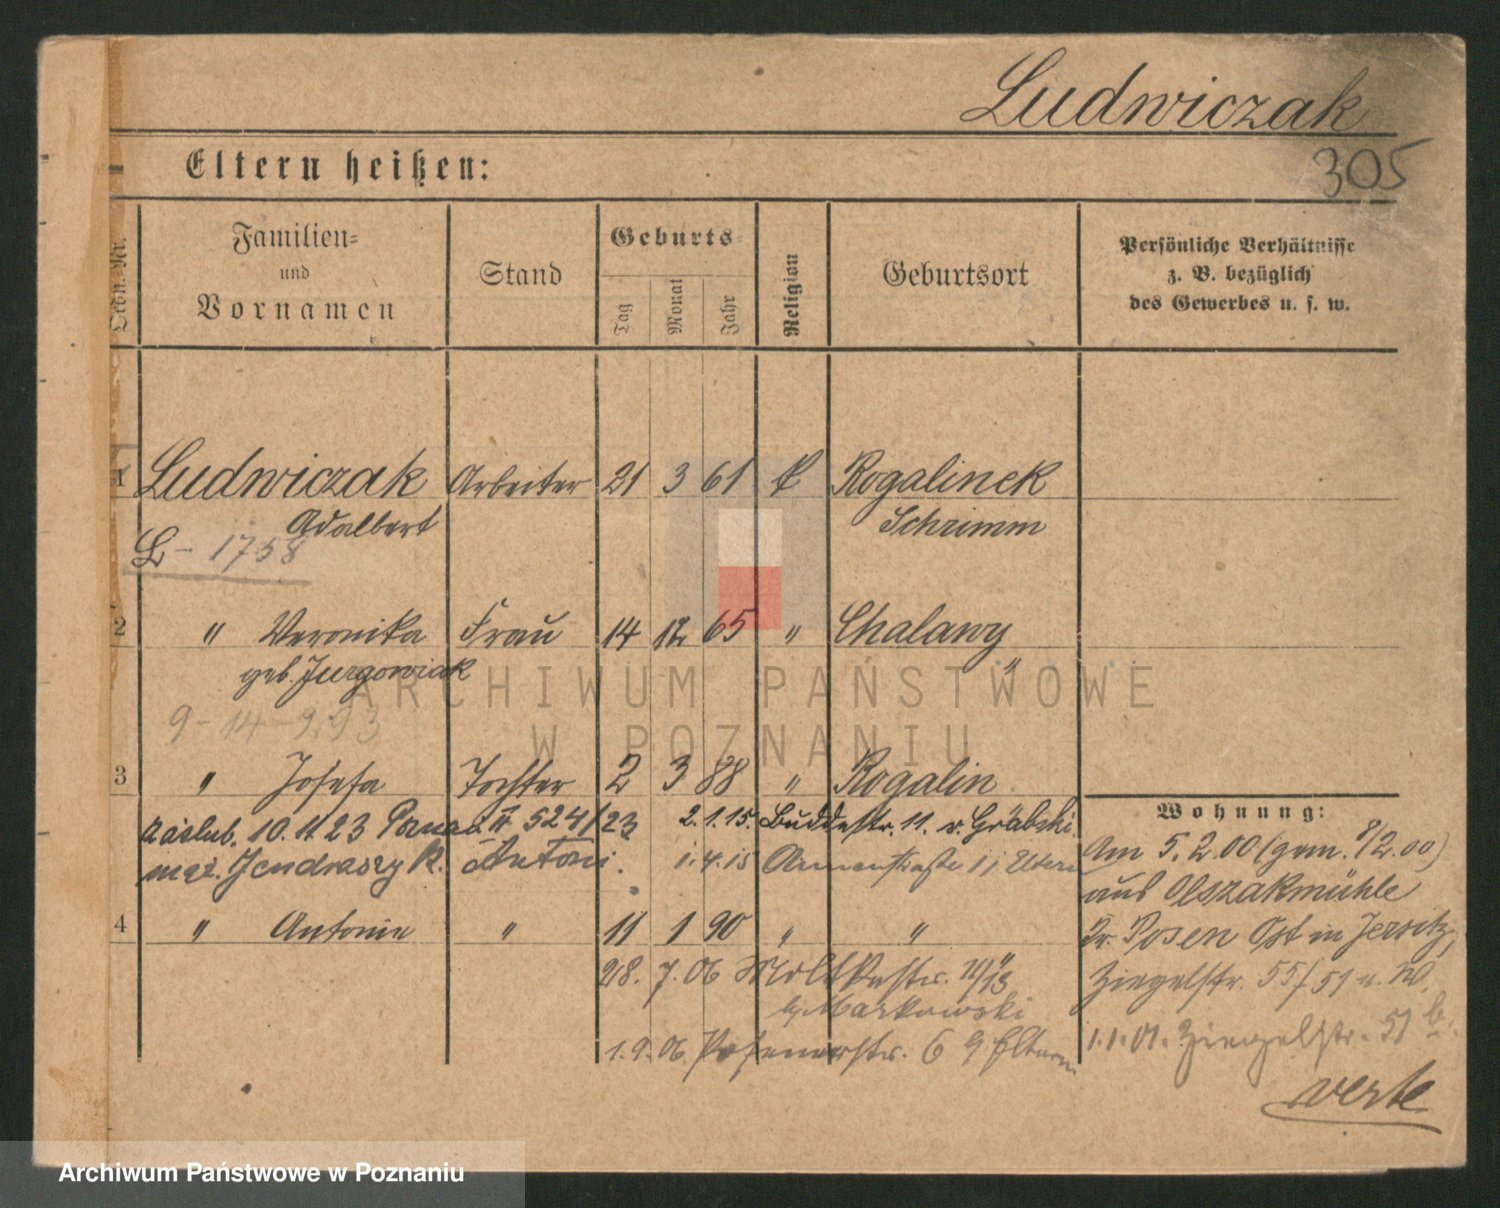 Ludwiczak
305
Eltern heißen:
Ordn.-Nr.
Familien-
und
Vornamen
Stand
Geburts-
Tag
Monat
Jahr
Religion
Geburtsort
Persönliche Verhältnisse
z. B. bezüglich
des Gewerbes u. s. w.
1 Ludwiczak Arbeiter 21 3 61 k Rogalinek
Adalbert Schrimm
L - 1758
2 " Veronika Frau 14 12 65 " Chalawy
geb. Jurgowiak "
9-14-293
3 " Josefa Tochter 2 3 88 " Rogalin
zaślub. 10.11.23 Poznań II 524/23 2.1.15. Buddestr. 11. v. Grabski.
męż. Jendraszyk Antoni. 1.4.15 Eltern
4 " Antonie " 11 1 90 " "
28. 7. 06 Moltkestr.
b. Markowski
1. 9. 06 Posenerstr. 6 Eltern
Wohnung:
Am 5.2.00 (gem. 8/2.00)
aus Olszakmühle
Kr. Posen Ost in Jersitz,
Ziegelstr. 55/51 u. W.
1.1.01. Ziegelstr. 51 b.
verte
ARCHIWUM PAŃSTWOWE
W POZNANIU
Archiwum Państwowe w Poznaniu